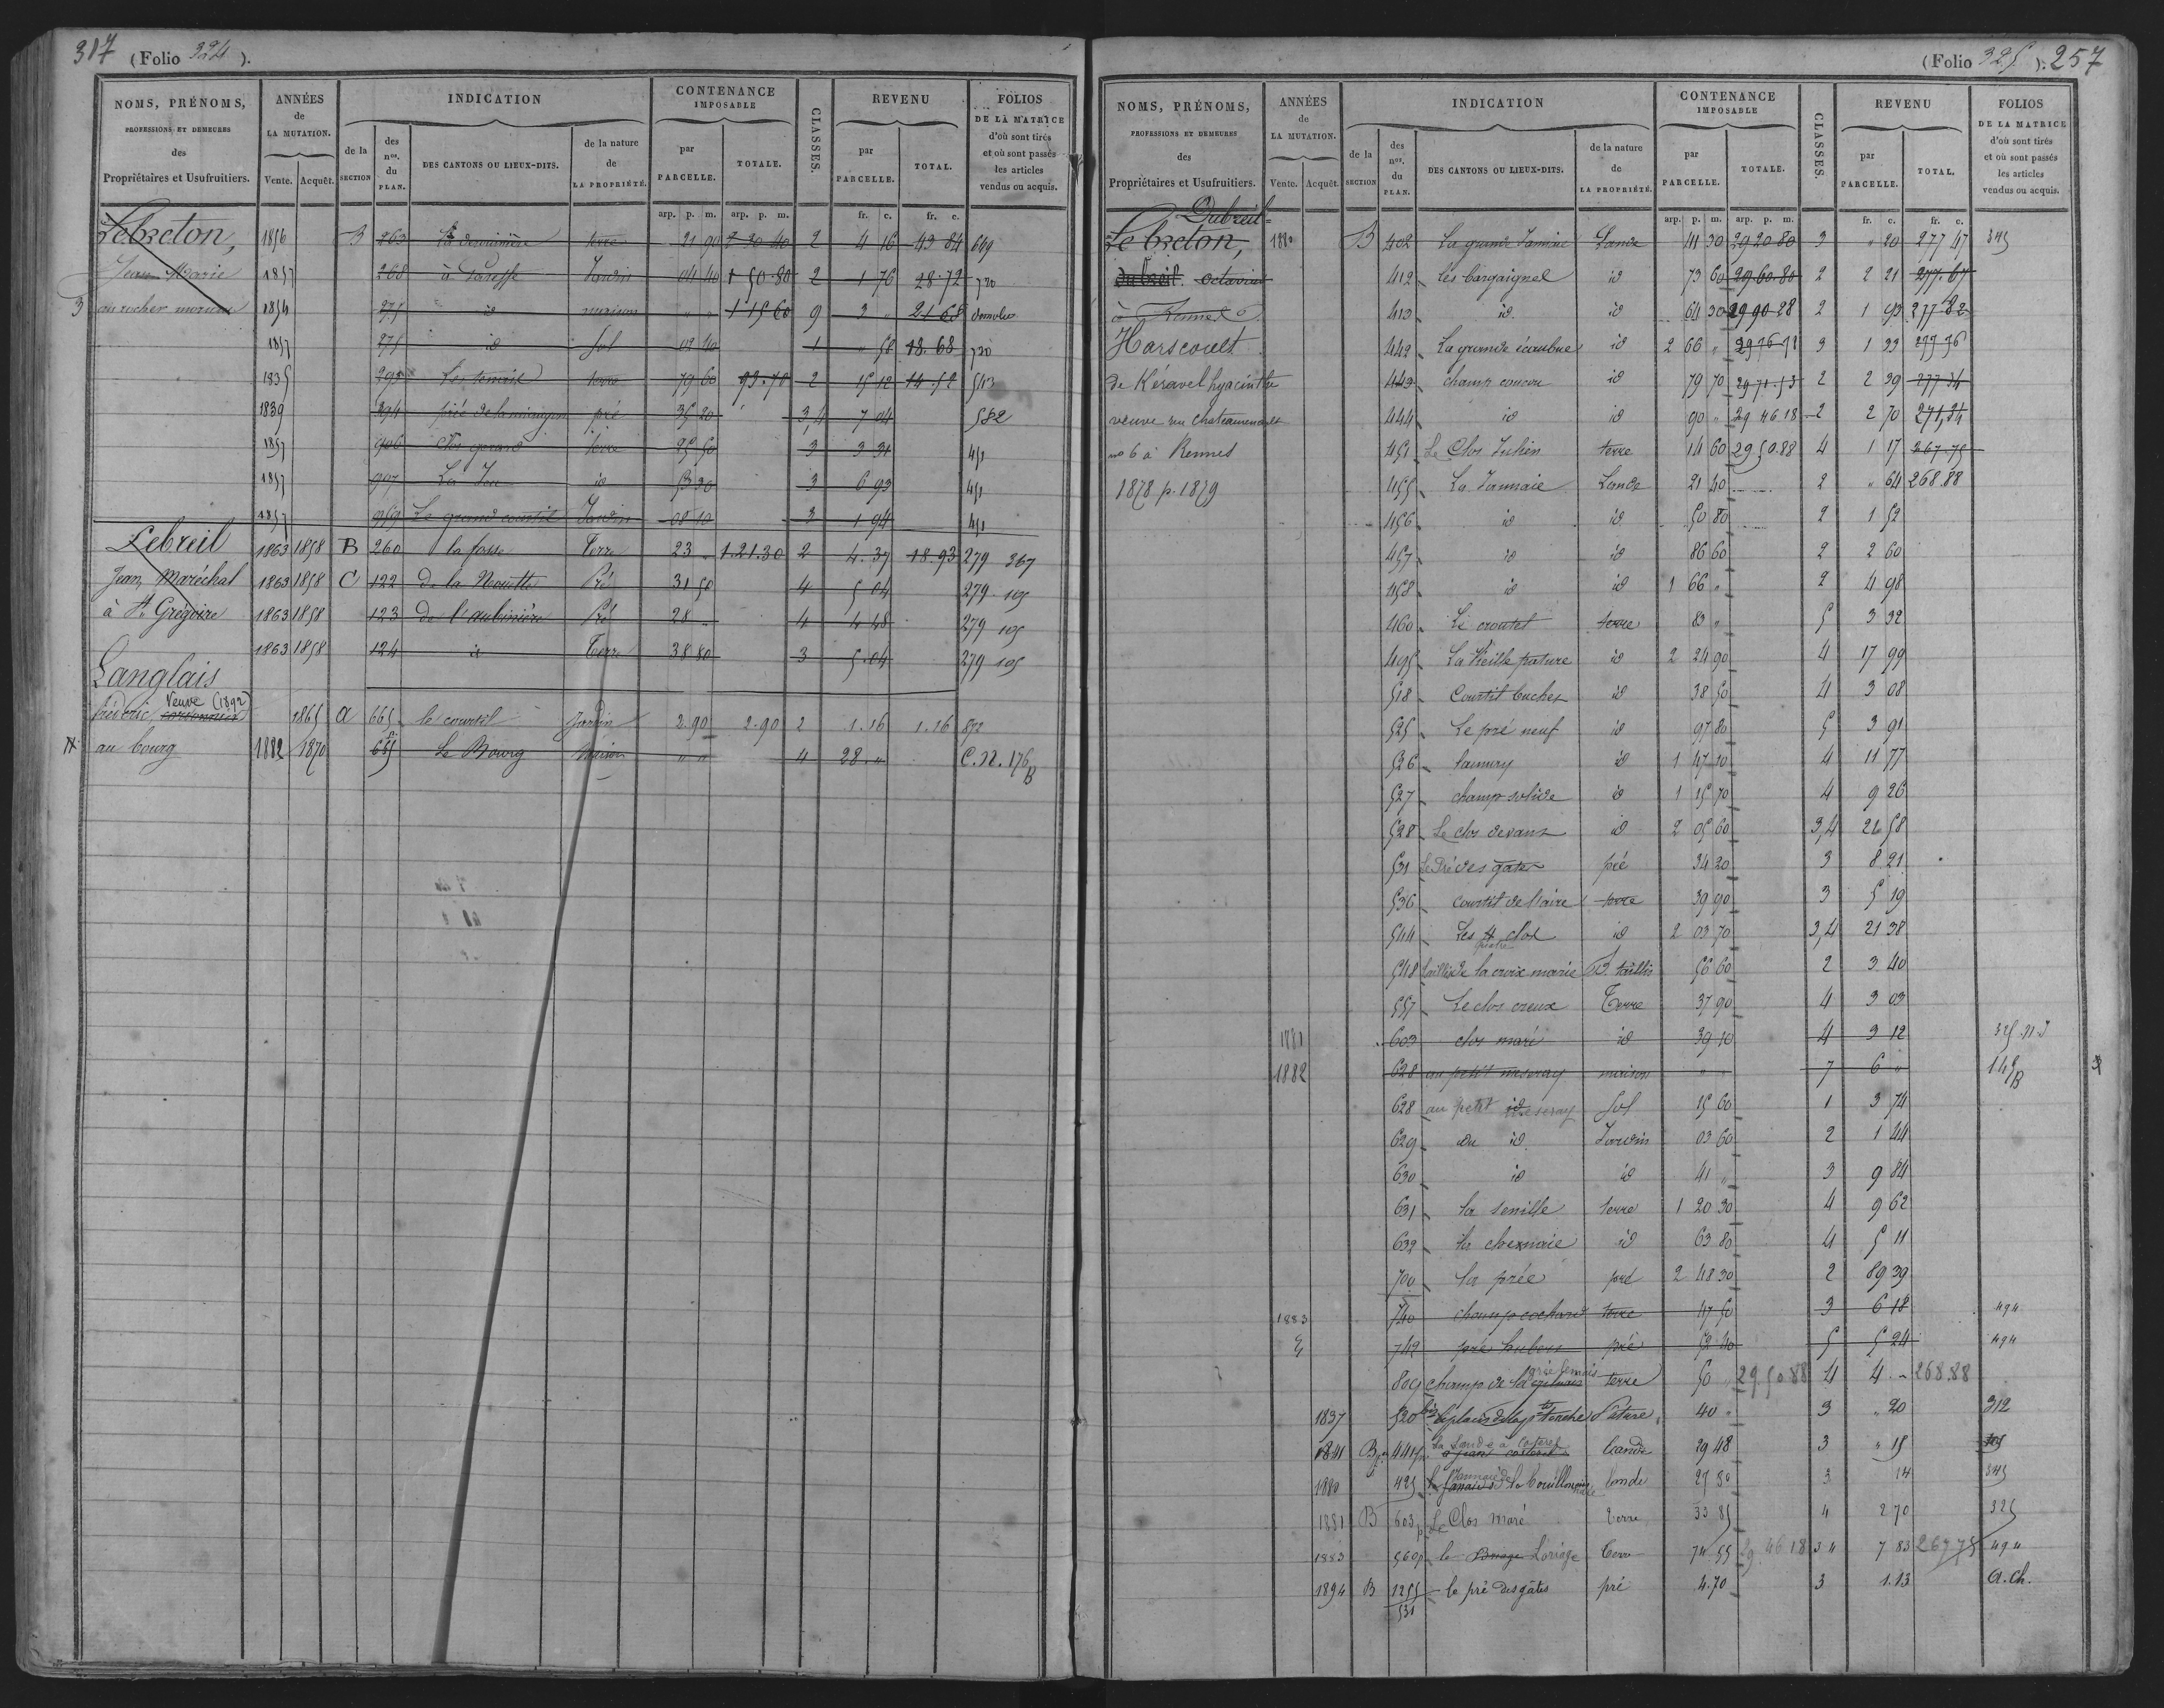 317 (Folio 324).
NOMS, PRÉNOMS, PROFESSIONS ET DEMEURES des Propriétaires et Usufruitiers.
ANNÉES de LA MUTATION. Vente. Acquêt.
INDICATION de la SECTION des nos. du PLAN. DES CANTONS OU LIEUX-DITS. de la nature de LA PROPRIÉTÉ.
CONTENANCE IMPOSABLE par PARCELLE. TOTALE.
CLASSES.
REVENU par PARCELLE. TOTAL.
FOLIOS DE LA MATRICE d'où sont tirés et où sont passés les articles vendus ou acquis.
arp. p. m. arp. p. m. fr. c. fr. c.
Lebreton, 1856 B 263 terre 21 90 2 4 16 43 84 669
Jean Marie 1857 268 Jardin 04 40 1 50 80 2 1 76 28.72 720
3 au rocher 1854 275 id maison " " 1 15 60 9 3 " 21 68
1857 275 id Sol 02 40 1 " 58 18.68 720
1835 295 terre 79 60 93.70 2 15 12 14.52 543
1839 294 pré 35 20 3,4 7 04 582
1857 906 Clos terre 25 50 3 3 31 451
1857 907 id 53 30 3 6 93 451
1857 959 Le grand courtil Jardin 08 10 3 1 94 451
Lebreil 1863 1858 B 260 la fosse Terre 23 " 1.21.30 2 4.37 18.93 279 367
Jean, Maréchal 1863 1858 C 122 de la Noutte Pré 31 50 4 5 04 279 105
à St. Grégoire 1863 1858 123 de l'aubinière Pré 28 " 4 4 48 279 105
1863 1858 124 id Terre 38 80 3 5.04 279 105
Langlais
frédéric, cordonnier Veuve (1892) 1865 a 665 le courtil Jardin 2.90 2.90 2 1.16 1.16 872
au bourg 1882 1870 685 p. Le Bourg Maison " " 4 28 " C.N. 176 B
(Folio 325). 257
NOMS, PRÉNOMS, PROFESSIONS ET DEMEURES des Propriétaires et Usufruitiers.
ANNÉES de LA MUTATION. Vente. Acquêt.
INDICATION de la SECTION des nos. du PLAN. DES CANTONS OU LIEUX-DITS. de la nature de LA PROPRIÉTÉ.
CONTENANCE IMPOSABLE par PARCELLE. TOTALE.
CLASSES.
REVENU par PARCELLE. TOTAL.
FOLIOS DE LA MATRICE d'où sont tirés et où sont passés les articles vendus ou acquis.
arp. p. m. arp. p. m. fr. c. fr. c.
Dubreil
Le breton, 1880 B 402 La grande Lande 41 30 29 20 80 3 " 20 277 47 345
dubreil octavien 412 les bargaignel id 73 60 29.60.80 2 2 21 277.67
à Rennes 413 id id 64 30 29 90 28 2 1 93 277.82
Harscouët 442 La grande écoubue id 2 66 " 3 1 33
de Kéravel hyacinthe 443 champ coucou id 79 70 29 71.53 2 2 39
veuve rue chateaurenault 444 id id 90 " 29 46 18 2 2 70 271,34
no 6 à Rennes 451 Le Clos Julien terre 14 60 29 50.88 4 1 17 267.75
1878 p. 1879 455 La Jannaie Lande 21 40 2 " 64 268.88
456 id id 50 80 2 1 52
457 id id 86 60 2 2 60
458 id id 1 66 " 2 4 98
460 Le croutel terre 83 " 5 3 32
495 La Vieille pature id 2 24 90 4 17 99
518 Courtil buchet id 38 50 4 3 08
525 Le pré neuf id 97 80 5 3 91
526 id 1 47 10 4 11 77
527 champ solide id 1 15 70 4 9 26
528 Le clos devant id 2 05 60 3,4 21 58
531 Le Pré des gâtes pré 34 20 3 8 21
536 courtil de l'aire terre 39 90 3 5 19
544 Les 4 quatre clos id 2 03 70 3,4 21 38
548 taillis de la croix marie B. taillis 56 60 2 3 40
557 Le clos creux Terre 37 90 4 3 03
1881 603 clos maré id 39 10 4 3 12
1882 628 au petit meseray maison " " 7 6 " 145 B
628 au petit meseray Sol 15 60 1 3 74
629 du id Jardin 03 60 2 1 44
630 id id 41 " 3 9 84
631 la tenille terre 1 20 30 4 9 62
632 la chesnaie id 63 80 4 5 11
700 la prée pré 2 48 30 2 89 39
1883 740 champ cochard terre 47 50 3 6 18 494
742 pré hubert pré 52 40 5 5 24 494
809 champ de la terre 50 " 29 50.88 4 4 " 268.88
1837 520 bis Pature 40 " 3 " 20 312
1841 B 441 p. La Lande à Lande 29 48 3 " 15
1880 425 la Jannaie de la bouillonnais lande 27 80 3 14 345
1881 B 603 p Le Clos Maré Terre 33 85 4 2 70 325
1883 560 p le Loriage Terre 74 55 29 46 18 3 4 7 83 267 75 494
1894 B 1255/531 le pré des gâtes pré 4.70 3 1.13 a. ch.